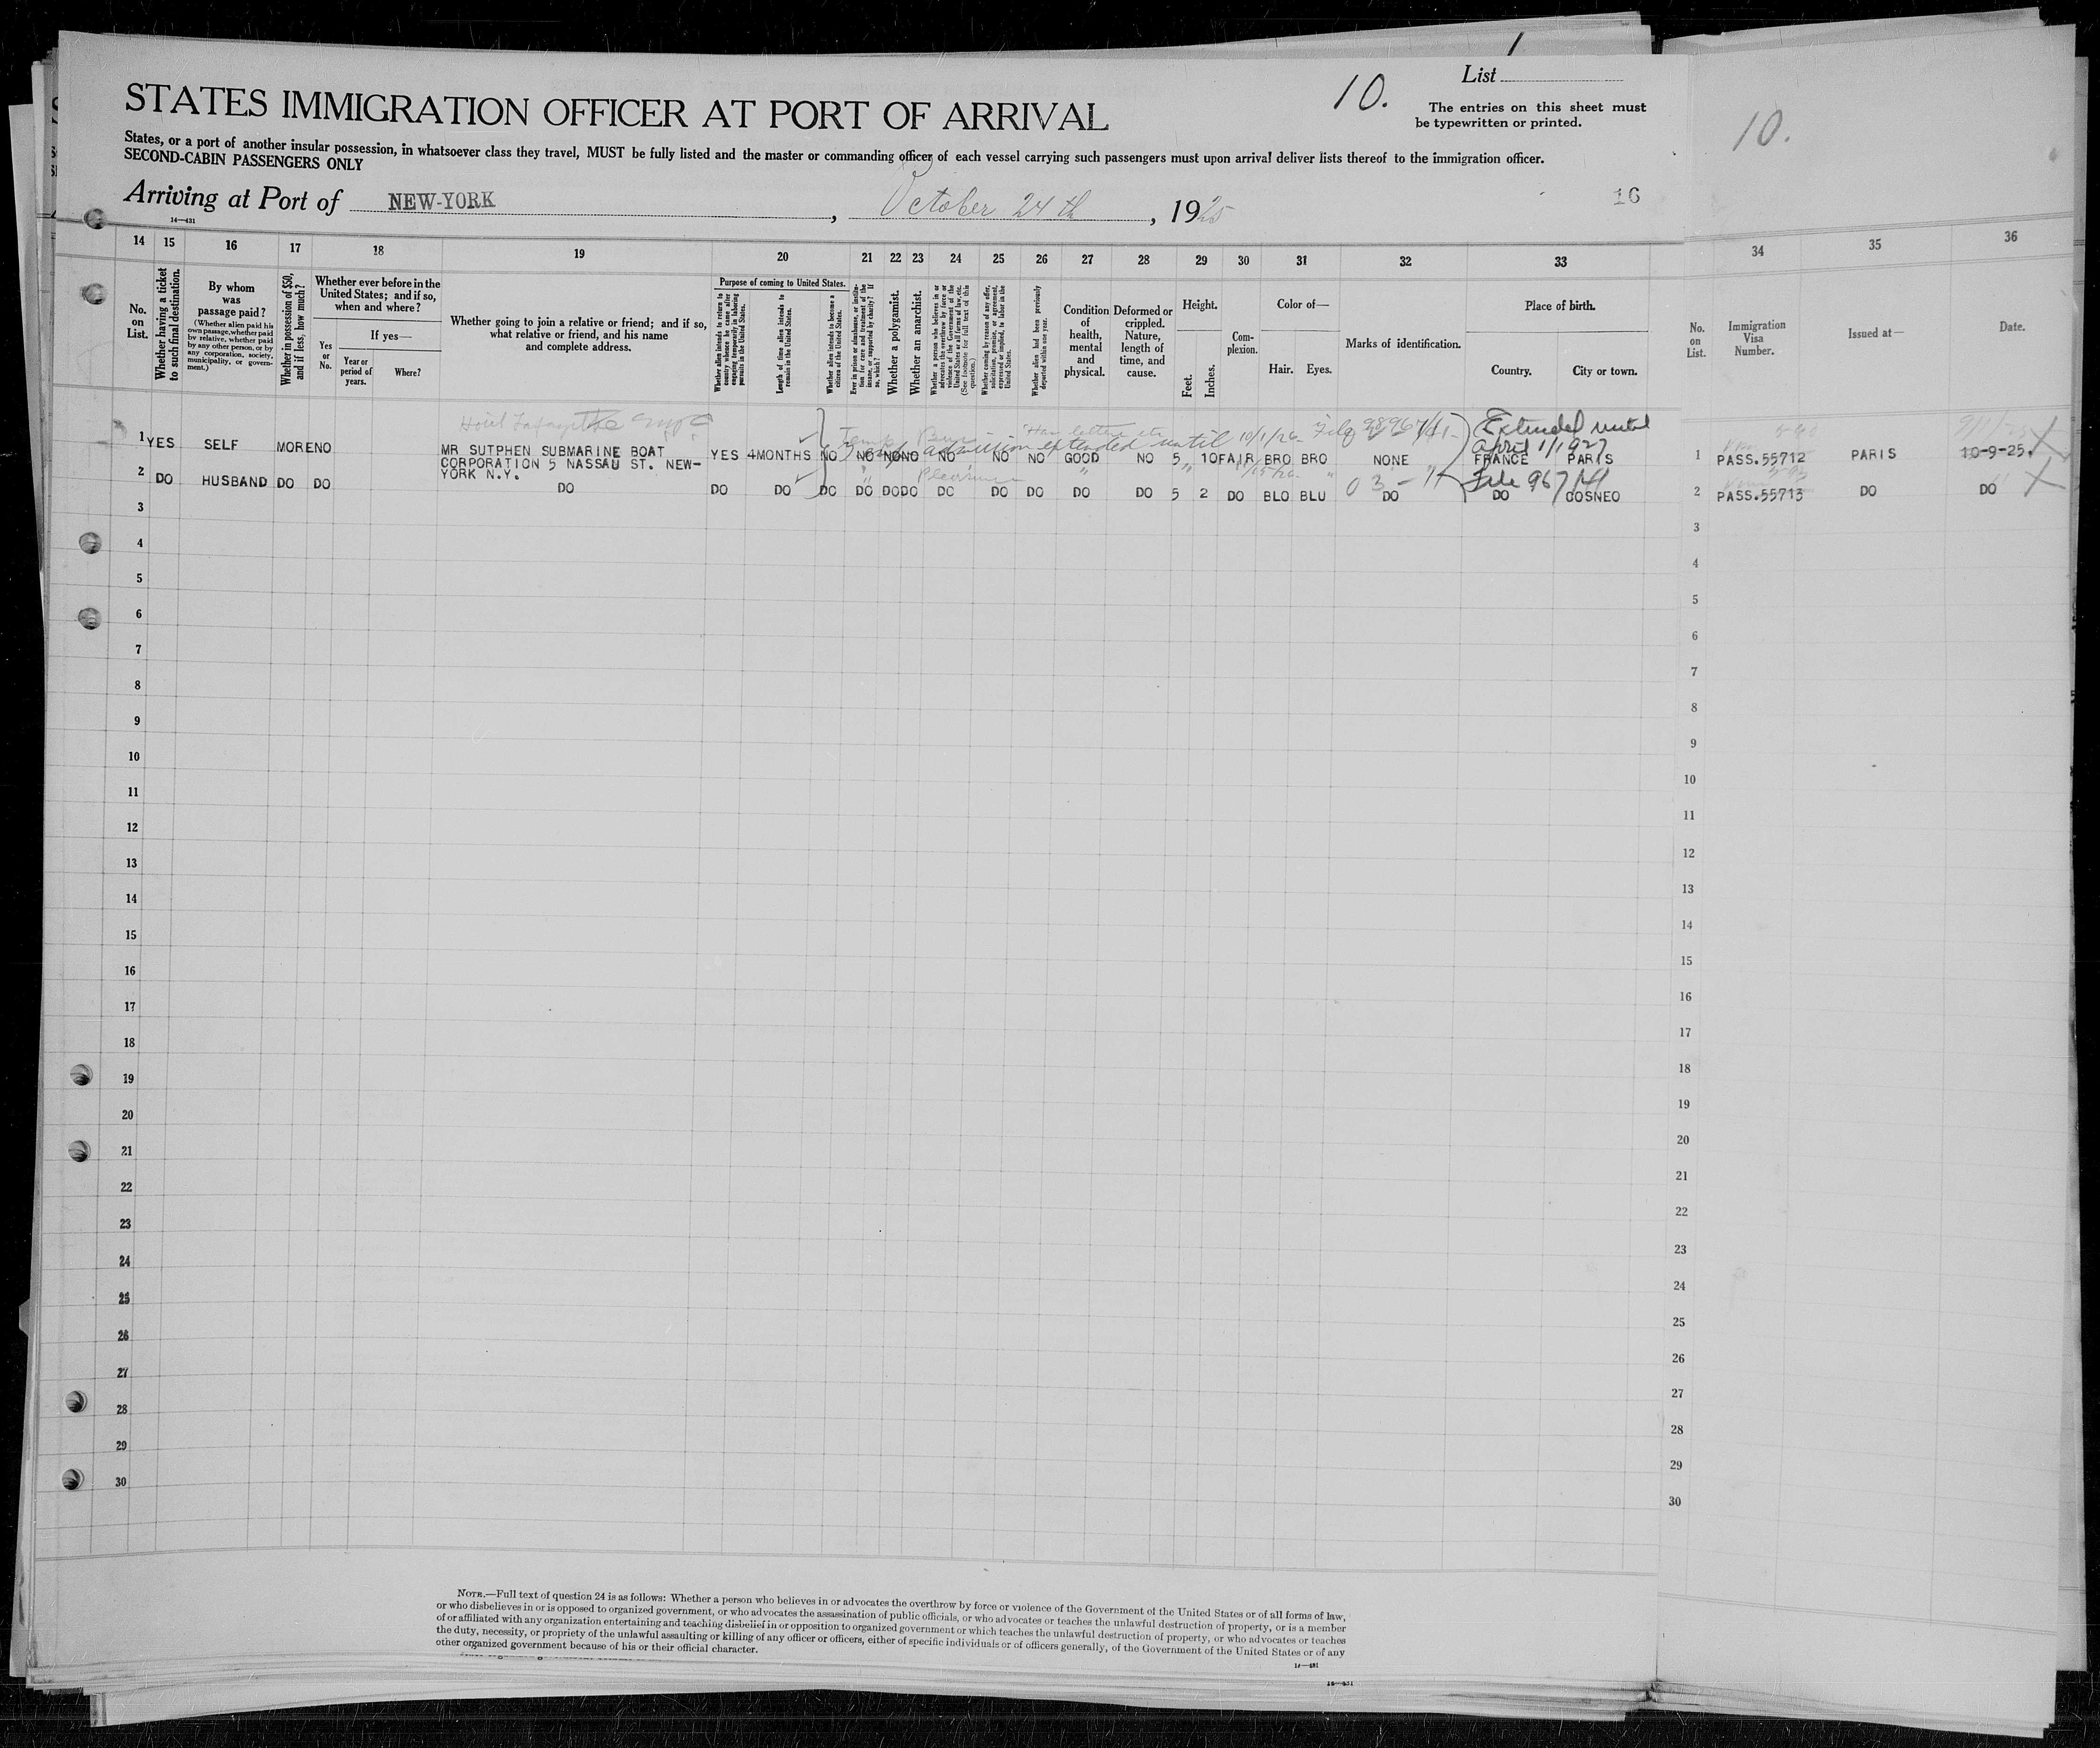 1
List
10.
STATES IMMIGRATION OFFICER AT PORT OF ARRIVAL
The entries on this sheet must
be typewritten or printed.
10.
States, or a port of another insular possession, in whatsoever class they travel, MUST be fully listed and the master or commanding officer of each vessel carrying such passengers must upon arrival deliver lists thereof to the immigration officer.
SECOND-CABIN PASSENGERS ONLY
Arriving at Port of NEW-YORK, October 24th, 1925
16
14—431
14 15 16 17 18 19 20 21 22 23 24 25 26 27 28 29 30 31 32 33 34 35 36
No. on List.
Whether having a ticket to such final destination.
By whom was passage paid?
(Whether alien paid his own passage, whether paid by relative, whether paid by any other person, or by any corporation, society, municipality, or government.)
Whether in possession of $50, and if less, how much?
Whether ever before in the United States; and if so, when and where?
Yes or No.
If yes—
Year or period of years.
Where?
Whether going to join a relative or friend; and if so, what relative or friend, and his name and complete address.
Purpose of coming to United States.
Whether alien intends to return to country whence he came after engaging temporarily in laboring pursuits in the United States.
Length of time alien intends to remain in the United States.
Whether alien intends to become a citizen of the United States.
Ever in prison or almshouse, or institution for care and treatment of the insane, or supported by charity? If so, which?
Whether a polygamist.
Whether an anarchist.
Whether a person who believes in or advocates the overthrow by force or violence of the Government of the United States or all forms of law, etc. (See footnote for full text of this question.)
Whether coming by reason of any offer, solicitation, promise, or agreement, expressed or implied, to labor in the United States.
Whether alien had been previously deported within one year.
Condition of health, mental and physical.
Deformed or crippled. Nature, length of time, and cause.
Height.
Feet. Inches.
Complexion.
Color of—
Hair. Eyes.
Marks of identification.
Place of birth.
Country. City or town.
No. on List.
Immigration Visa Number.
Issued at—
Date.
Hotel Lafayette
Extended until
April 1/1927
File 967/41
Temp. admission extended until 10/1/26
Pleasure
1 YES SELF MORENO MR SUTPHEN SUBMARINE BOAT YES 4MONTHS NO NO NONO NO NO NO GOOD NO 5 10 FAIR BRO BRO NONE FRANCE PARIS 1 PASS.55712 PARIS 10-9-25.
CORPORATION 5 NASSAU ST. NEW-
YORK N.Y.
2 DO HUSBAND DO DO DO DO DO DO DO DODO DO DO DO DO DO 5 2 DO BLO BLU DO DO COSNEO 2 PASS.55713 DO DO
3 3
4 4
5 5
6 6
7 7
8 8
9 9
10 10
11 11
12 12
13 13
14 14
15 15
16 16
17 17
18 18
19 19
20 20
21 21
22 22
23 23
24 24
25 25
26 26
27 27
28 28
29 29
30 30
NOTE.—Full text of question 24 is as follows: Whether a person who believes in or advocates the overthrow by force or violence of the Government of the United States or of all forms of law,
or who disbelieves in or is opposed to organized government, or who advocates the assassination of public officials, or who advocates or teaches the unlawful destruction of property, or is a member
of or affiliated with any organization entertaining and teaching disbelief in or opposition to organized government or which teaches the unlawful destruction of property, or who advocates or teaches
the duty, necessity, or propriety of the unlawful assaulting or killing of any officer or officers, either of specific individuals or of officers generally, of the Government of the United States or of any
other organized government because of his or their official character.
14—431